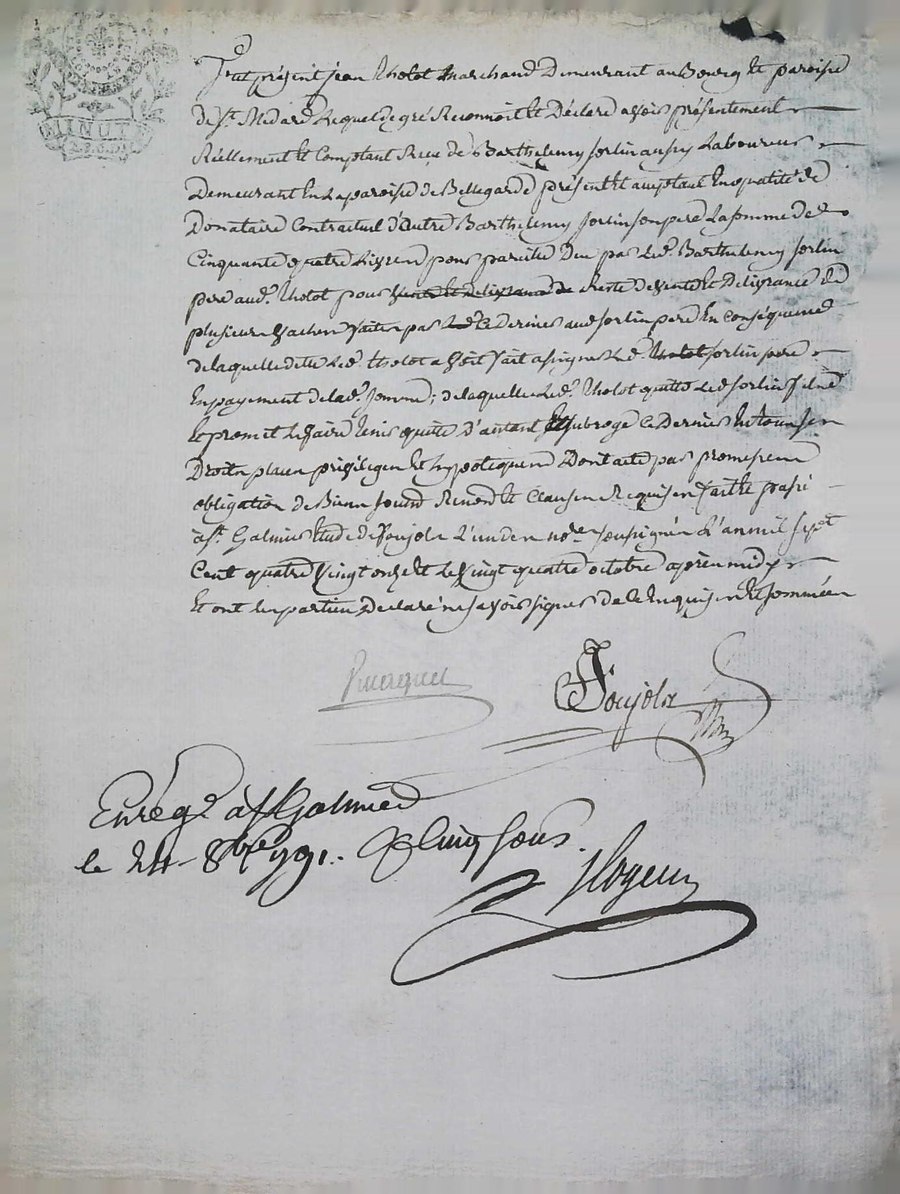 MINUTE
Fut présent jean Tholot Marchand Demeurant au Bourg et paroisse
de St. Medard Lequel de gré Reconnoit et Déclare avoir présentement
Réellement et Comptant Reçu de Barthelemy sorlin aussy Laboureur
Demeurant En La paroisse de Bellegarde présent et acceptant En qualité de
Donataire Contractuel d'autre Barthelemy sorlin son pere La somme de
Cinquante quatre Livres pour pareille Due par Led. Barthelemy sorlin
pere aud. Tholot pour vente et delivrance de Reste de vente et Delivrance de
plusieurs vaches faites par Led ce Dernier aud sorlin pere En conséquence
de laquelle dette Led. tholot avoit fait assigner Led. tholot sorlin pere
En payement de lad. somme; de laquelle Led. Tholot quitte Led sorlin fils
et promet Le faire tenir quitte d'autant et subroge ce Dernier En tous ses
Droits places privileges et hypoteques Dont acte par promesses
obligation de Biens soumis Renonc et Clauses Requises fait et passé
à st. Galmier Etude de Poujola L'un des nores soussignés L'an mil sept
Cent quatre vingt onze et Le vingt quatre octobre après midy
Et ont les parties Declaré ne savoir signer de ce Enquises et sommées
Poujola
Enrégé à st Galmier
le 24 8bre 1791. R cinq sous.